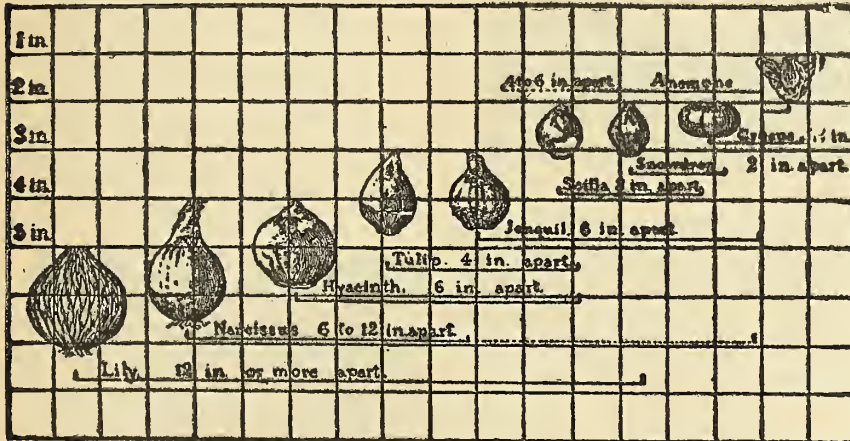 1 in.
2 in.
4 to 6 in. apart Anemone
3 in.
Snowdrop 2 in. apart.
4 in.
Scilla 3 in. apart
5 in.
Jonquil, 6 in. apart
Tulip. 4 in. apart.
Hyacinth. 6 in. apart.
Narcissus 6 to 12 in. apart.
Lily. 12 in. or more apart.